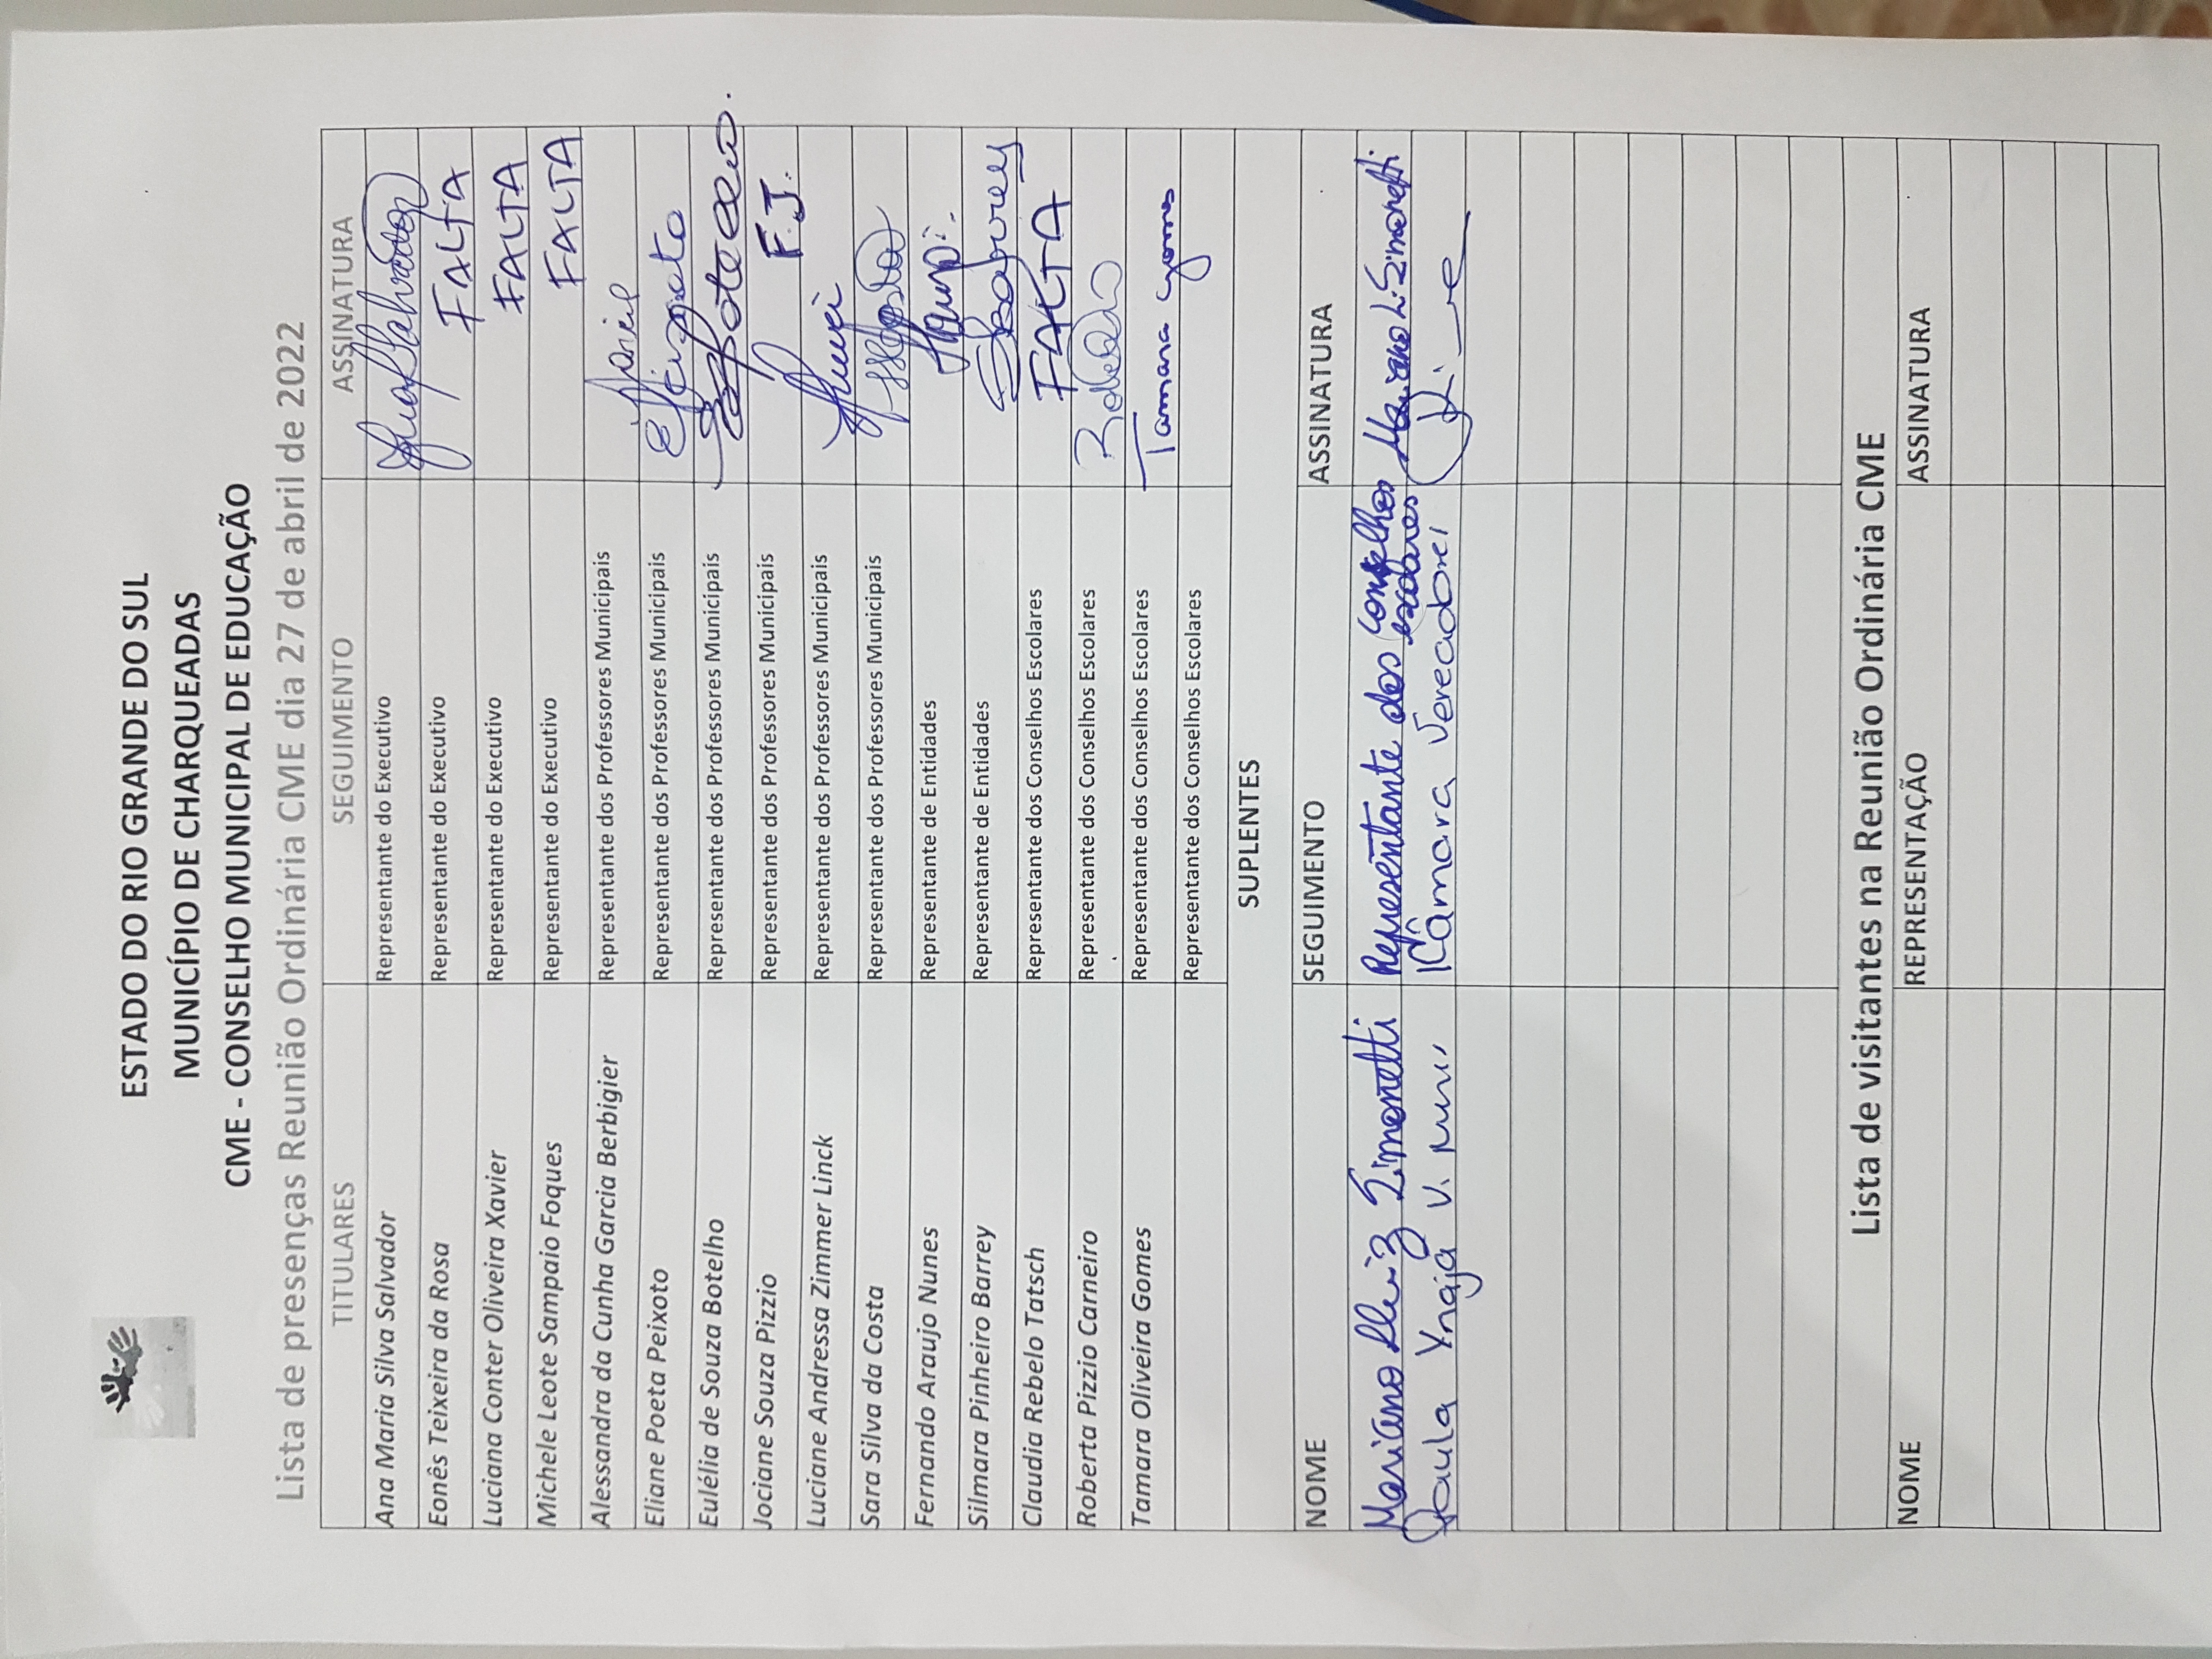 ESTADO DO RIO GRANDE DO SUL
MUNICÍPIO DE CHARQUEADAS
CME - CONSELHO MUNICIPAL DE EDUCAÇÃO
Lista de presenças Reunião Ordinária CME dia 27 de abril de 2022
TITULARES SEGUIMENTO ASSINATURA
Ana Maria Silva Salvador Representante do Executivo
Eonês Teixeira da Rosa Representante do Executivo FALTA
Luciana Conter Oliveira Xavier Representante do Executivo FALTA
Michele Leote Sampaio Foques Representante do Executivo FALTA
Alessandra da Cunha Garcia Berbigier Representante dos Professores Municipais
Eliane Poeta Peixoto Representante dos Professores Municipais
Eulélia de Souza Botelho Representante dos Professores Municipais
Jociane Souza Pizzio Representante dos Professores Municipais F.J.
Luciane Andressa Zimmer Linck Representante dos Professores Municipais
Sara Silva da Costa Representante dos Professores Municipais
Fernando Araujo Nunes Representante de Entidades
Silmara Pinheiro Barrey Representante de Entidades
Claudia Rebelo Tatsch Representante dos Conselhos Escolares FALTA
Roberta Pizzio Carneiro Representante dos Conselhos Escolares
Tamara Oliveira Gomes Representante dos Conselhos Escolares Tamara Gomes
Representante dos Conselhos Escolares
SUPLENTES
NOME SEGUIMENTO ASSINATURA
Mariano Luiz Simonetti Representante dos Conselhos escolares Mariano L. Simonetti
Paula Ynajá V. Câmara Vereadores
Lista de visitantes na Reunião Ordinária CME
NOME REPRESENTAÇÃO ASSINATURA